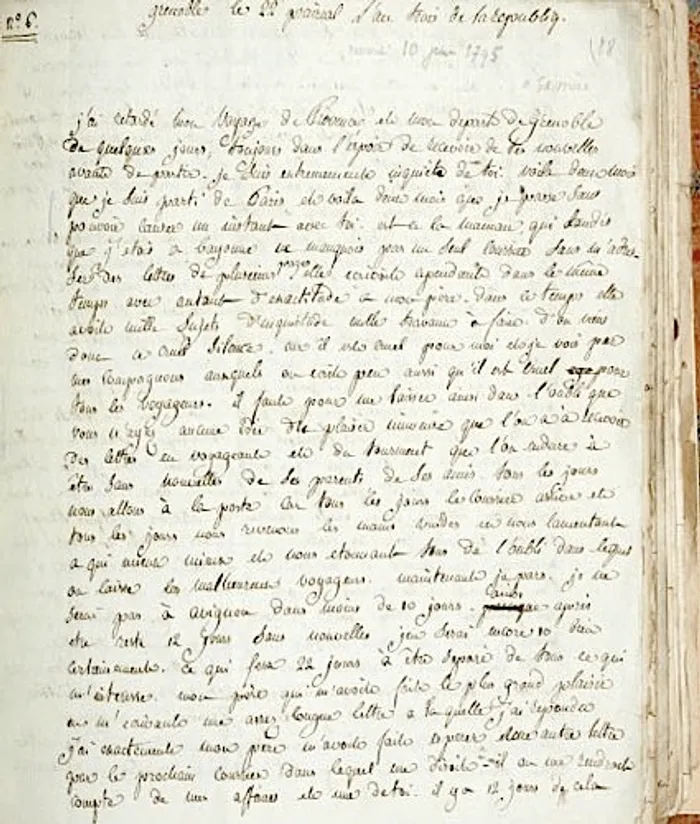 n° 6.
grenoble le 22 prairial l'an trois de la republiq.
10 juin 1795
j'ai retardé mon voyage de Provence et mon depart de Grenoble
de quelques jours, toujours dans l'espoir de recevoir de tes nouvelles
avant de partir. je suis extremement inquiete de toi. voila deux mois
que je suis parti de Paris et voila deux mois que je passe sans
pouvoir causer un instant avec toi. est-ce la maman qui tandis
que j'etais a bayonne ne manquoit pas un seul courrier sans m'adres-
ser des lettres de plusieurs pages, elle ecrivoit cependant dans le même
temps avec autant d'exactitude a mon pere. dans ce temps elle
avoit mille sujets d'inquietude mille travaux à faire. d'où vien
donc ce cruel silence. car il est cruel pour moi et je vois par
mes compagnons auxquels on ecrit peu aussi qu'il est cruel pour
tous les voyageurs. il faut pour me laisser ainsi dans l'oubli que
vous n'ayez aucune idée du plaisir immense que l'on a à recevoir
des lettres en voyageant et du tourment que l'on endure à
être sans nouvelles de ses parents de ses amis. tous les jours
nous allons à la poste car tous les jours le courrier arrive et
tous les jours nous revenons les mains vuides en nous lamentant
a qui mieux mieux et nous etonnant tous de l'oubli dans lequel
on laisse les malheureux voyageurs. maintenant je pars. je ne
serai pas à avignon dans moins de 10 jours. ainsi après
etre resté 12 jours sans nouvelles j'en serai encore 10 bien
certainement. ce qui fera 22 jours à être separé de tous ce qui
m'interesse. mon pere qui m'avoit fait le plus grand plaisir
en m'ecrivant une assez longue lettre a laquelle j'ai repondu
j'ai exactement mon pere m'avoit fait esperer une autre lettre
par le prochain courrier dans lequel me disoit-il on me rendroit
compte de mes affaires et de toi. il y a 12 jours de cela